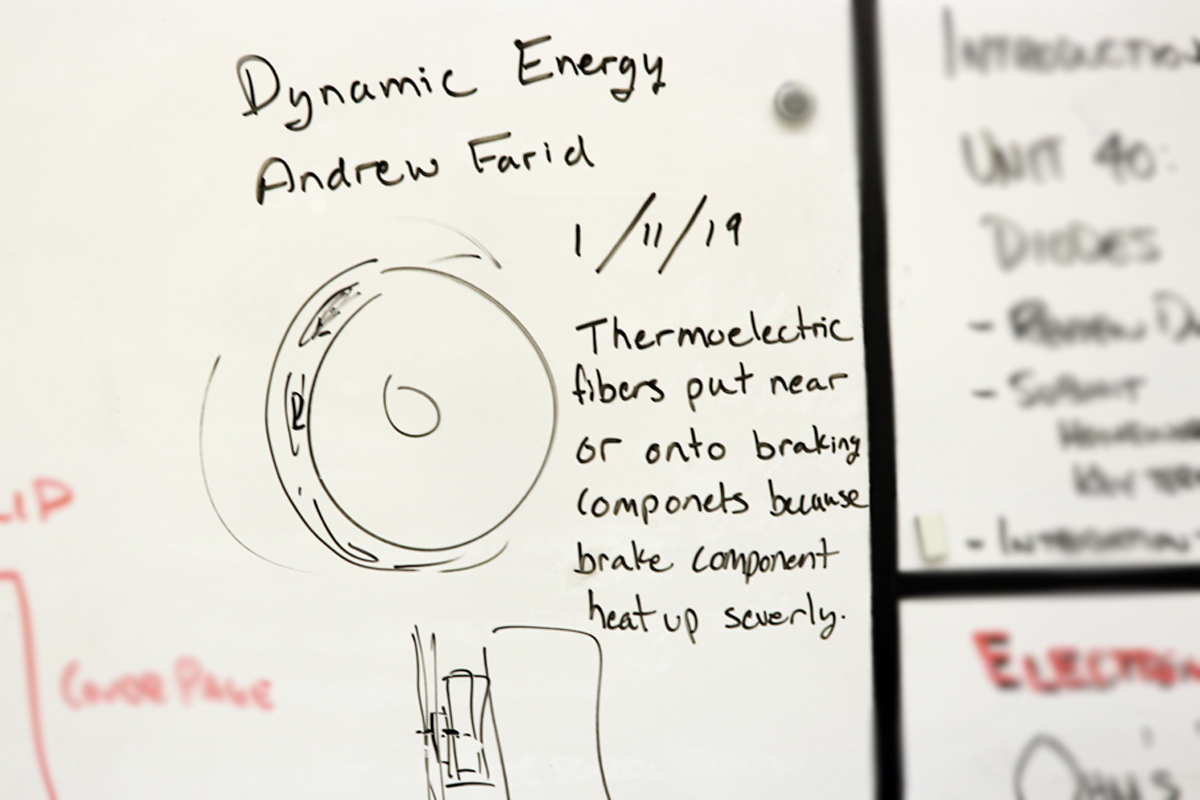 Dynamic Energy
Andrew Farid
1/11/19
Thermoelectric
fibers put near
or onto braking
componets because
brake component
heat up severly.
LID
COVER PAGE
INTRODUCTION
UNIT 40:
DIODES
- REVIEW
- SUBMIT
HOMEWORK
KEY TERM
ELECTRON
OHM'S